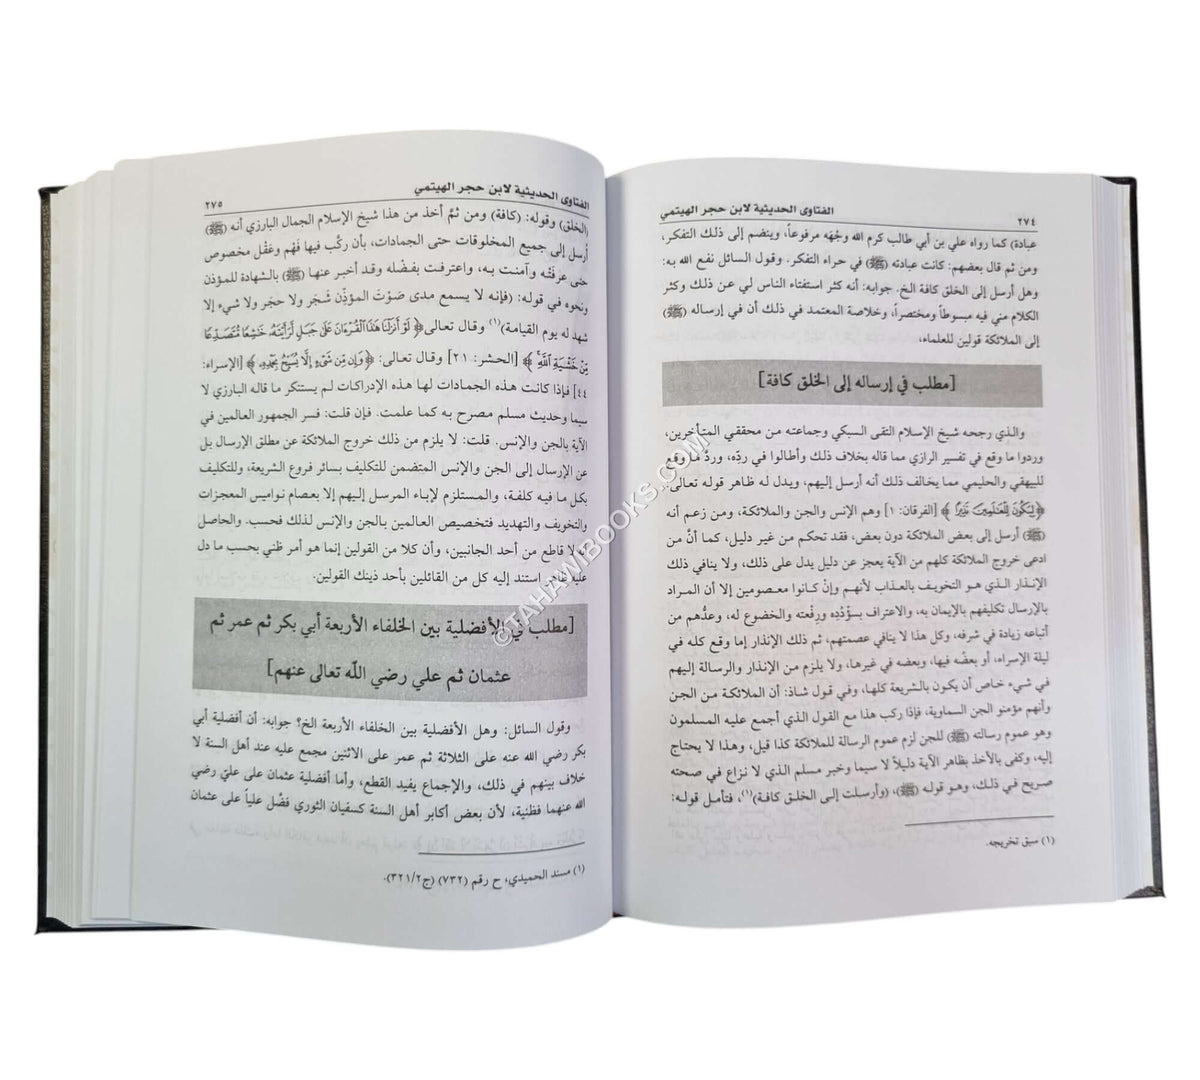 ٢٧٤
الفتاوى الحديثية لابن حجر الهيتمي
عبادة) كما رواه علي بن أبي طالب كرم الله وجهه مرفوعاً، وينضم إلى ذلك التفكر،
ومن ثم قال بعضهم: كانت عبادته (ﷺ) في حراء التفكر. وقول السائل نفع الله به:
وهل أرسل إلى الخلق كافة الخ. جوابه: أنه كثر استفتاء الناس لي عن ذلك وكثر
الكلام مني فيه مبسوطاً ومختصراً، وخلاصة المعتمد في ذلك أن في إرساله (ﷺ)
إلى الملائكة قولين للعلماء،
[مطلب في إرساله إلى الخلق كافة]
والذي رجحه شيخ الإسلام التقى السبكي وجماعته من محققي المتأخرين،
وردوا ما وقع في تفسير الرازي مما قاله بخلاف ذلك وأطالوا في ردِّه، وردُّ ما وقع
للبيهقي والحليمي مما يخالف ذلك أنه أرسل إليهم، ويدل له ظاهر قوله تعالى:
﴿لِيَكُونَ لِلْعَالَمِينَ نَذِيرًا﴾ [الفرقان: ١] وهم الإنس والجن والملائكة، ومن زعم أنه
(ﷺ) أرسل إلى بعض الملائكة دون بعض، فقد تحكم من غير دليل، كما أنَّ من
ادعى خروج الملائكة كلهم من الآية يعجز عن دليل يدل على ذلك، ولا ينافي ذلك
الإنذار الذي هو التخويف بالعذاب لأنهم وإنْ كانوا معصومين إلا أن المراد
بالإرسال تكليفهم بالإيمان به، والاعتراف بسؤْدُدِه ورِفْعته والخضوع له، وعدُّهم من
أتباعه زيادة في شرفه، وكل هذا لا ينافي عصمتهم، ثم ذلك الإنذار إما وقع كله في
ليلة الإسراء، أو بعضُه فيها، وبعضه في غيرها، ولا يلزم من الإنذار والرسالة إليهم
في شيء خاص أن يكون بالشريعة كلها، وفي قول شاذ: أن الملائكة من الجن
وأنهم مؤمنو الجن السماوية، فإذا ركب هذا مع القول الذي أجمع عليه المسلمون
وهو عموم رسالته (ﷺ) للجن لزم عموم الرسالة للملائكة كذا قيل، وهذا لا يحتاج
إليه، وكفى بالأخذ بظاهر الآية دليلاً لا سيما وخبر مسلم الذي لا نزاع في صحته
صريح في ذلك، وهو قوله (ﷺ)، (وأرسلت إلى الخلق كافة)(١)، فتأمل قوله:
(١) سبق تخريجه.
الفتاوى الحديثية لابن حجر الهيتمي
٢٧٥
(الخلق) وقوله: (كافة) ومن ثمَّ أخذ من هذا شيخ الإسلام الجمال البارزي أنه (ﷺ)
أرسل إلى جميع المخلوقات حتى الجمادات، بأن ركَّب فيها فَهْم وعَقْل مخصوص
حتى عرفَتْه وآمنت به، واعترفت بفضْله وقد أخبر عنها (ﷺ) بالشهادة للمؤذن
ونحوه في قوله: (فإنه لا يسمع مدى صَوْتَ المؤذِّن شَجَر ولا حجَر ولا شيء إلا
شهد له يوم القيامة)(١) وقال تعالى ﴿لَوْ أَنزَلْنَا هَٰذَا الْقُرْءَانَ عَلَىٰ جَبَلٍ لَّرَأَيْتَهُۥ خَٰشِعًا مُّتَصَدِّعًا
مِّنْ خَشْيَةِ اللَّهِ﴾ [الحشر: ٢١] وقال تعالى: ﴿وَإِن مِّن شَىْءٍ إِلَّا يُسَبِّحُ بِحَمْدِهِ﴾ [الإسراء:
٤٤] فإذا كانت هذه الجمادات لها هذه الإدراكات لم يستنكر ما قاله البارزي لا
سيما وحديث مسلم مصرح به كما علمت. فإن قلت: فسر الجمهور العالمين في
الآية بالجن والإنس. قلت: لا يلزم من ذلك خروج الملائكة عن مطلق الإرسال بل
عن الإرسال إلى الجن والإنس المتضمن للتكليف بسائر فروع الشريعة، وللتكليف
بكل ما فيه كلفة، والمستلزم لإباء المرسل إليهم إلا بعصام نواميس المعجزات
والتخويف والتهديد فتخصيص العالمين بالجن والإنس لذلك فحسب. والحاصل
لا قاطع من أحد الجانبين، وأن كلا من القولين إنما هو أمر ظني بحسب ما دل
عليه ظاهر استند إليه كل من القائلين بأحد ذينك القولين.
[مطلب في الأفضلية بين الخلفاء الأربعة أبي بكر ثم عمر ثم
عثمان ثم علي رضي الله تعالى عنهم]
وقول السائل: وهل الأفضلية بين الخلفاء الأربعة الخ؟ جوابه: أن أفضلية أبي
بكر رضي الله عنه على الثلاثة ثم عمر على الاثنين مجمع عليه عند أهل السنة لا
خلاف بينهم في ذلك، والإجماع يفيد القطع، وأما أفضلية عثمان على عليّ رضي
الله عنهما فظنية، لأن بعض أكابر أهل السنة كسفيان الثوري فضَّل علياً على عثمان
(١) مسند الحميدي، ح رقم (٧٣٢) (ج٣٢١/٢).
©TAHAWIBOOKS.COM